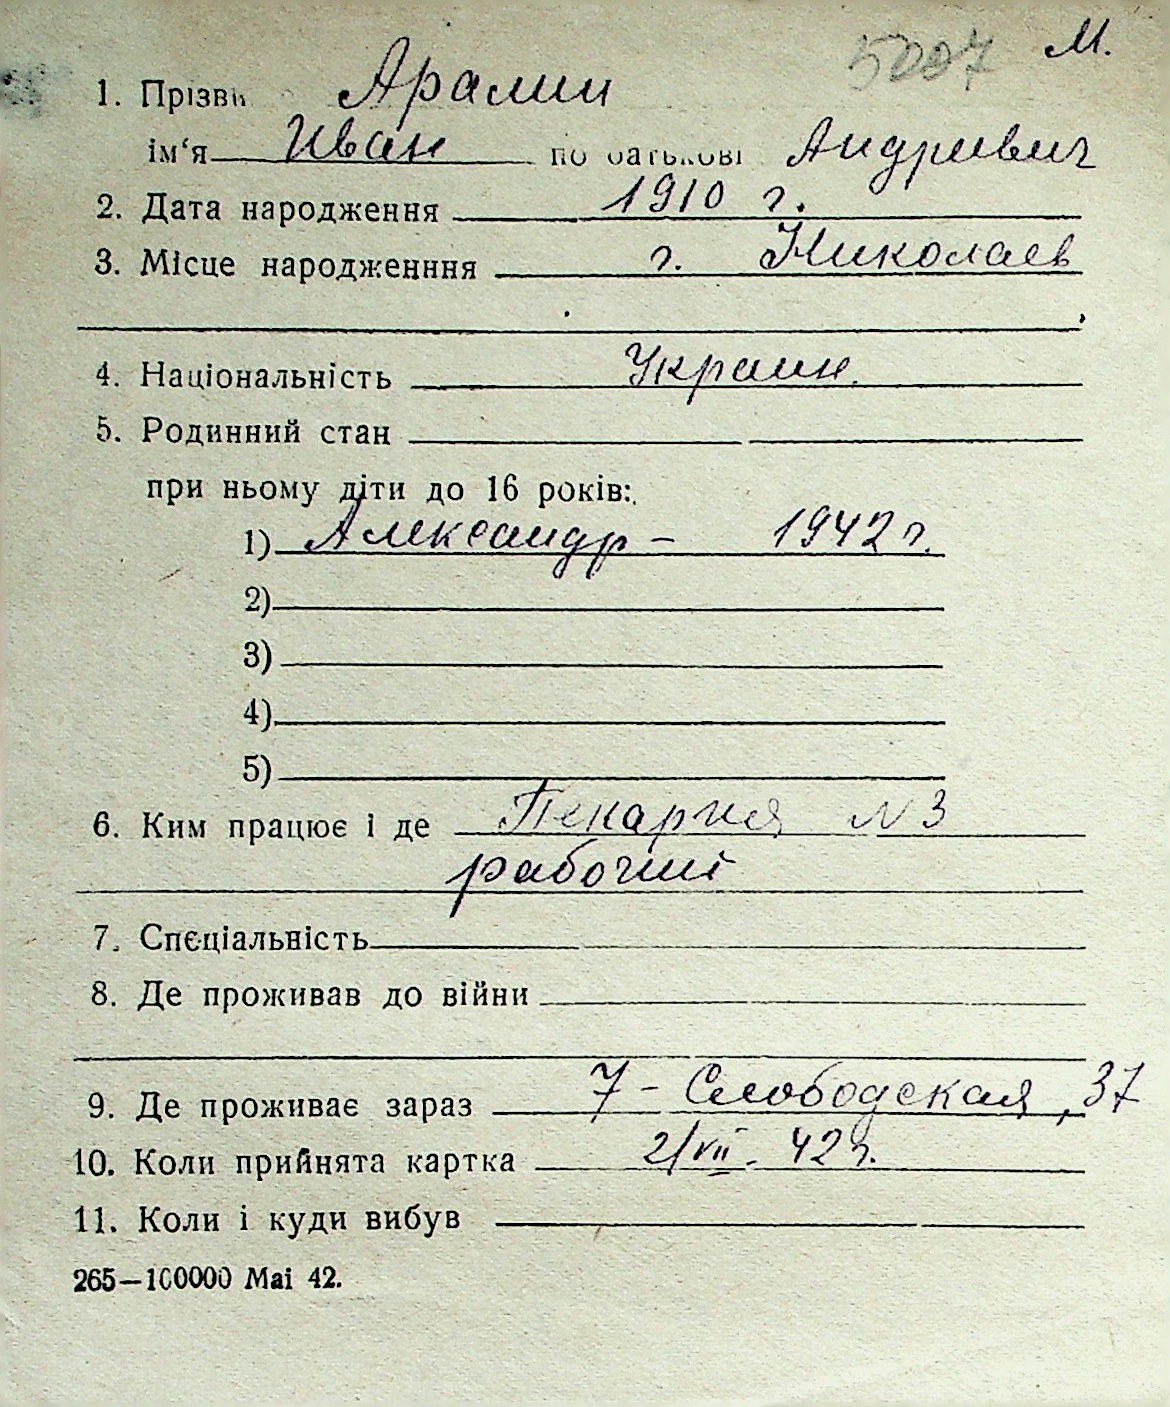 5007 М.
1. Прізви Арамин
ім‘я Иван по батькові Андриевич
2. Дата народження 1910 г.
3. Місце народженння г. Николаев
4. Національність Украин.
5. Родинний стан
при ньому діти до 16 років:
1) Александр – 1942 г.
2)
3)
4)
5)
6. Ким працює і де Пекарня N 3
рабочий
7. Спєціальність
8. Де проживав до війни
9. Де проживає зараз 7 - Слободская, 37
10. Коли прийнята картка 2/VII. 42 г.
11. Коли і куди вибув
265—100000 Маі 42.